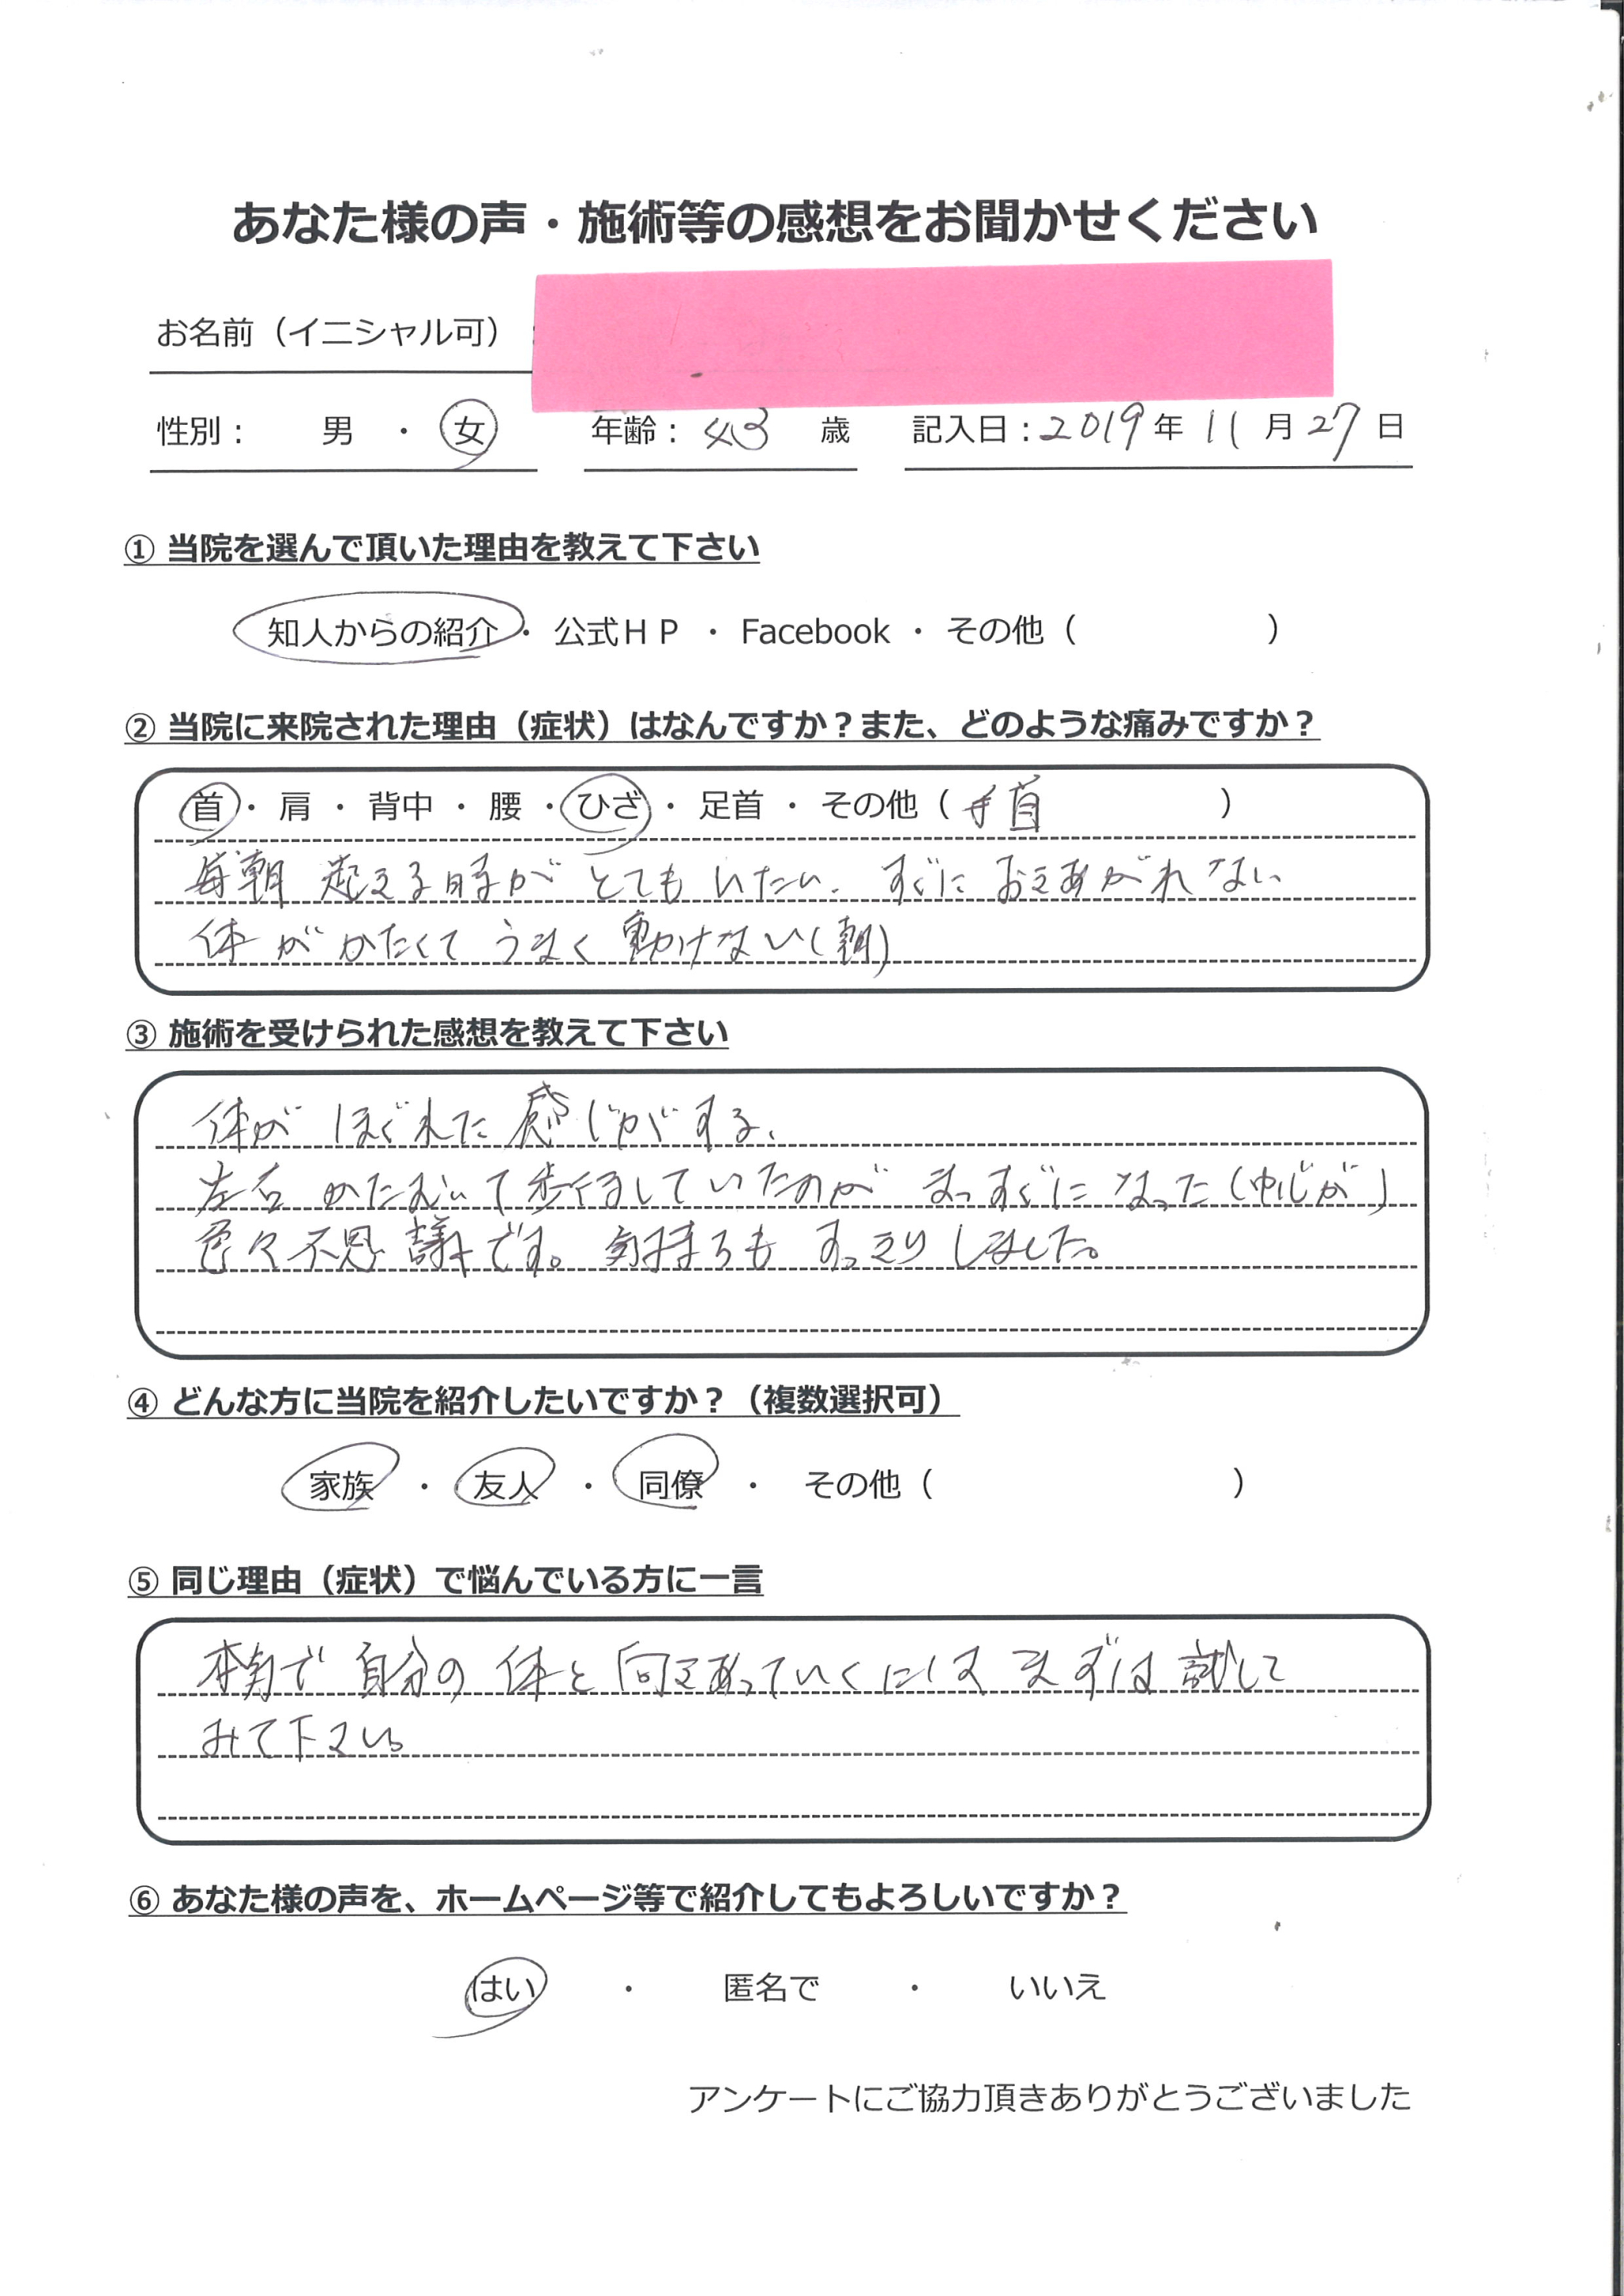 あなた様の声・施術等の感想をお聞かせください
お名前（イニシャル可）:
性別： 男 ・ 女 年齢： 43 歳 記入日：2019年 11月 27日
① 当院を選んで頂いた理由を教えて下さい
知人からの紹介 ・ 公式ＨＰ ・ Facebook ・ その他（ ）
② 当院に来院された理由（症状）はなんですか？また、どのような痛みですか？
首 ・ 肩 ・ 背中 ・ 腰 ・ ひざ ・ 足首 ・ その他（ 手首 ）
毎朝 起きる時が とても いたい. すぐに おきあがれない
体が かたくて うまく 動けない(朝)
③ 施術を受けられた感想を教えて下さい
体が ほぐれた 感じがする、
左右 かたむいて歩行していたのが まっすぐに なった(感じが)
色々不思議です。気持ちも すっきり しました。
④ どんな方に当院を紹介したいですか？（複数選択可）
家族 ・ 友人 ・ 同僚 ・ その他（ ）
⑤ 同じ理由（症状）で悩んでいる方に一言
本気で 自分の 体と 向きあっていくには まずは 試して
みて下さい。
⑥ あなた様の声を、ホームページ等で紹介してもよろしいですか？
はい ・ 匿名で ・ いいえ
アンケートにご協力頂きありがとうございました